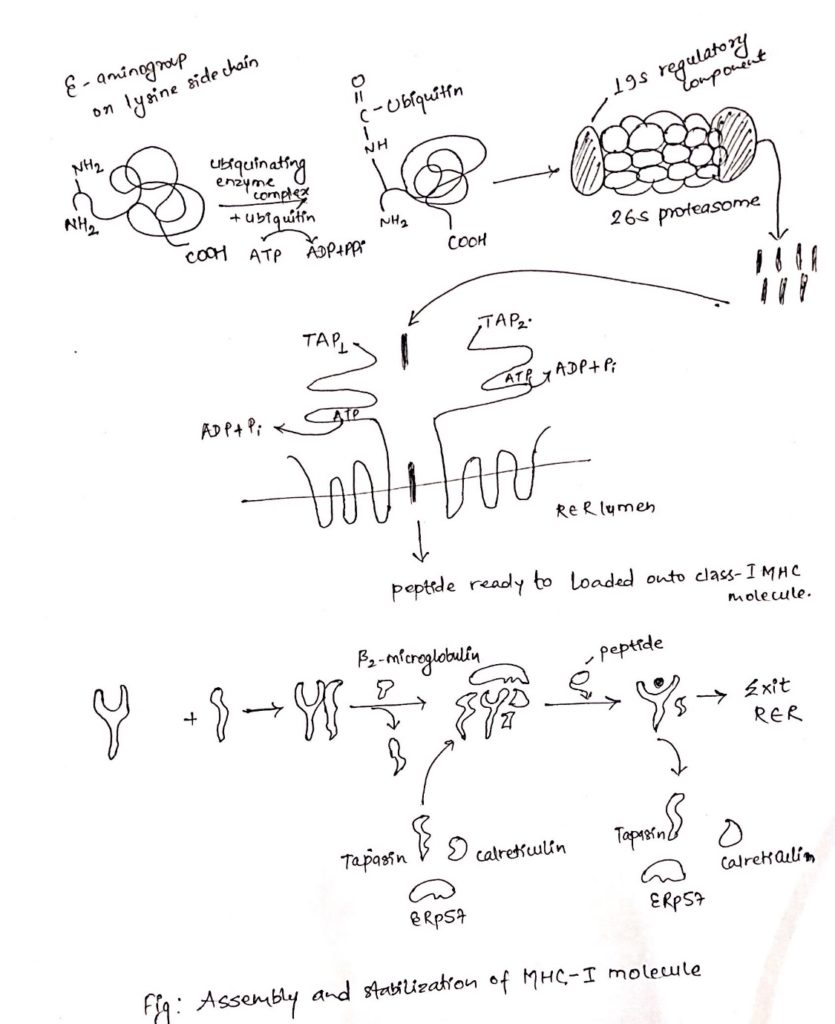 ε-aminogroup
on lysine side chain
NH2
NH2
COOH
ubiquinating
enzyme
complex
+ ubiquitin
ATP
ADP+PPi
O
C-Ubiquitin
NH
NH2
COOH
19s regulatory
component
26s proteasome
TAP1
TAP2.
ATP
ADP+Pi
ATP
ADP+Pi
RER lumen
peptide ready to loaded onto class-I MHC
molecule.
β2-microglobulin
peptide
+
Exit
RER
Tapasin
calreticulin
ERp57
Tapasin
calreticulin
ERp57
Fig: Assembly and stabilization of MHC-I molecule